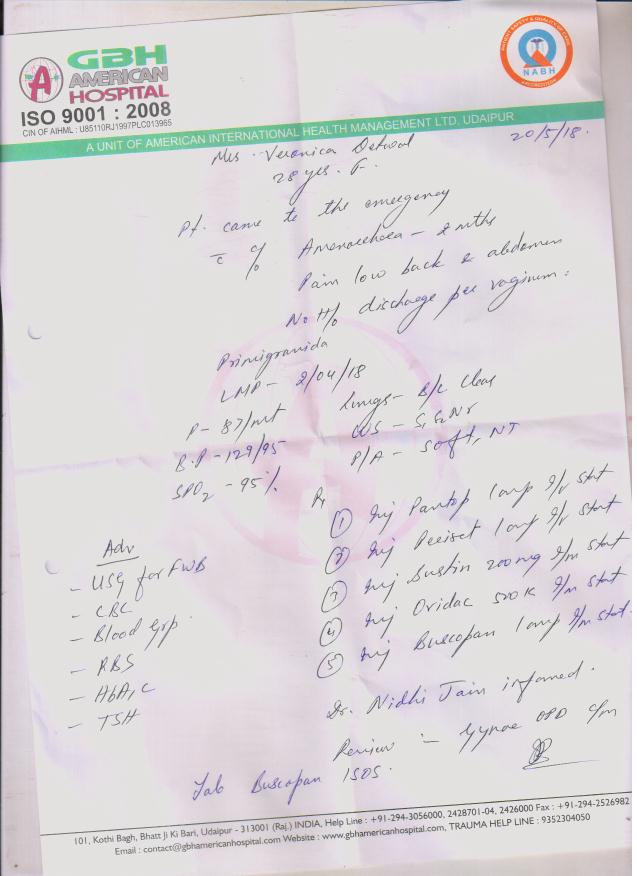 GBH
AMERICAN
HOSPITAL
ISO 9001 : 2008
CIN OF AIHML : U85110RJ1997PLC013965
PATIENT SAFETY & QUALITY OF CARE
NABH
ACCREDITED
A UNIT OF AMERICAN INTERNATIONAL HEALTH MANAGEMENT LTD. UDAIPUR
20/5/18.
Mrs. Veronica
28 yrs. F.
Pt. came to the emergency
c c/o Amenorrhoea - 2 mths
Pain low back & abdomen
No H/o discharge per vaginum.
Primigravida
LMP - 2/04/18
P - 87/mt
Lungs - B/L Clear
B.P - 129/95
CVS - S1S2 Nr
SPO2 - 95%
P/A - Soft, NT
Rx
① Inj Pantop 1 amp I/v stat
② Inj Periset 1 amp I/v stat
③ Inj Sustin 200 mg I/m stat
④ Inj Ovidac 5000K I/m stat
⑤ Inj Buscopan 1 amp I/m stat.
Adv
- USG for FWB
- CBC
- Blood Grp.
- RBS
- HbA1C
- TSH
Dr. Nidhi Jain informed.
Review :- Gynae OPD c/m
Tab Buscopan 1SOS.
101, Kothi Bagh, Bhatt Ji Ki Bari, Udaipur - 313001 (Raj.) INDIA, Help Line : +91-294-3056000, 2428701-04, 2426000 Fax : +91-294-2526982
Email : contact@gbhamericanhospital.com Website : www.gbhamericanhospital.com, TRAUMA HELP LINE : 9352304050